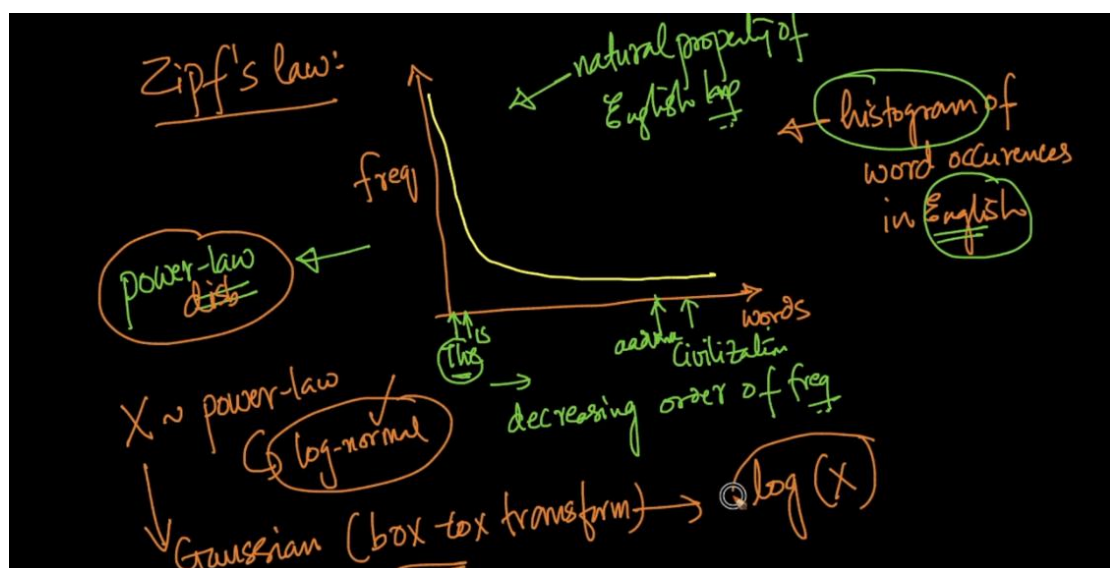 Zipf's law:
natural property of
English
histogram of
word occurences
in English
freq
power-law
dist
words
This is
Civilization
decreasing order of freq
X ~ power-law
log-normal
Gaussian (box-cox transform) → log (X)